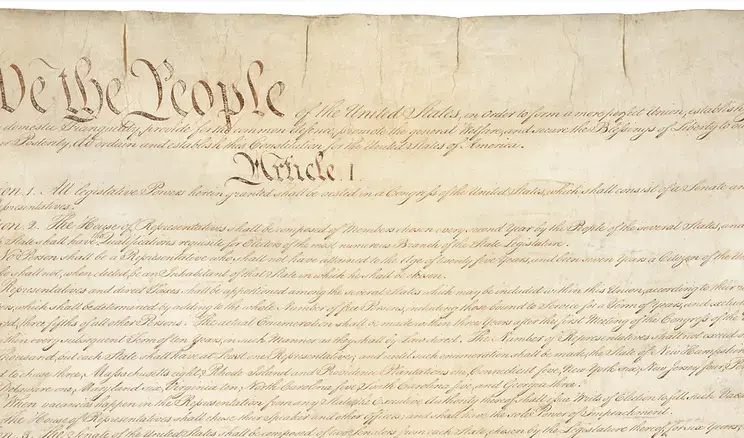 We the People of the United States, in order to form a more perfect Union, establish
domestic Tranquility, provide for the common defence, promote the general Welfare, and secure the Blessings of Liberty to
Posterity, do ordain and establish this Constitution for the United States of America.
Article I.
on 1. All legislative Powers herein granted shall be vested in a Congress of the United States, which shall consist of a Senate and
presentatives.
on 2. The House of Representatives shall be composed of Members chosen every second Year by the People of the several States, and
State shall have the Qualifications requisite for Electors of the most numerous Branch of the State Legislature.
No Person shall be a Representative who shall not have attained to the Age of twenty five Years, and been seven Years a Citizen of the
shall not, when elected, be an Inhabitant of that State in which he shall be chosen.
Representatives and direct Taxes shall be apportioned among the several States which may be included within this Union, according to their
which shall be determined by adding to the whole Number of free Persons, including those bound to Service for a Term of Years, and
three fifths of all other Persons. The actual Enumeration shall be made within three Years after the first Meeting of the Congress of the
every subsequent Term of ten Years, in such Manner as they shall by Law direct. The Number of Representatives shall not exceed
thousand, but each State shall have at Least one Representative; and until such enumeration shall be made, the State of New Hampshire
to chuse three, Massachusetts eight, Rhode Island and Providence Plantations one, Connecticut five, New York six, New Jersey four,
Delaware one, Maryland six, Virginia ten, North Carolina five, South Carolina five, and Georgia three.
When vacancies happen in the Representation from any State, the Executive Authority thereof shall issue Writs of Election to fill such
the House of Representatives shall chuse their Speaker and other Officers; and shall have the sole Power of Impeachment.
3. The Senate of the United States shall be composed of two Senators from each State, chosen by the Legislature thereof, for six Years;